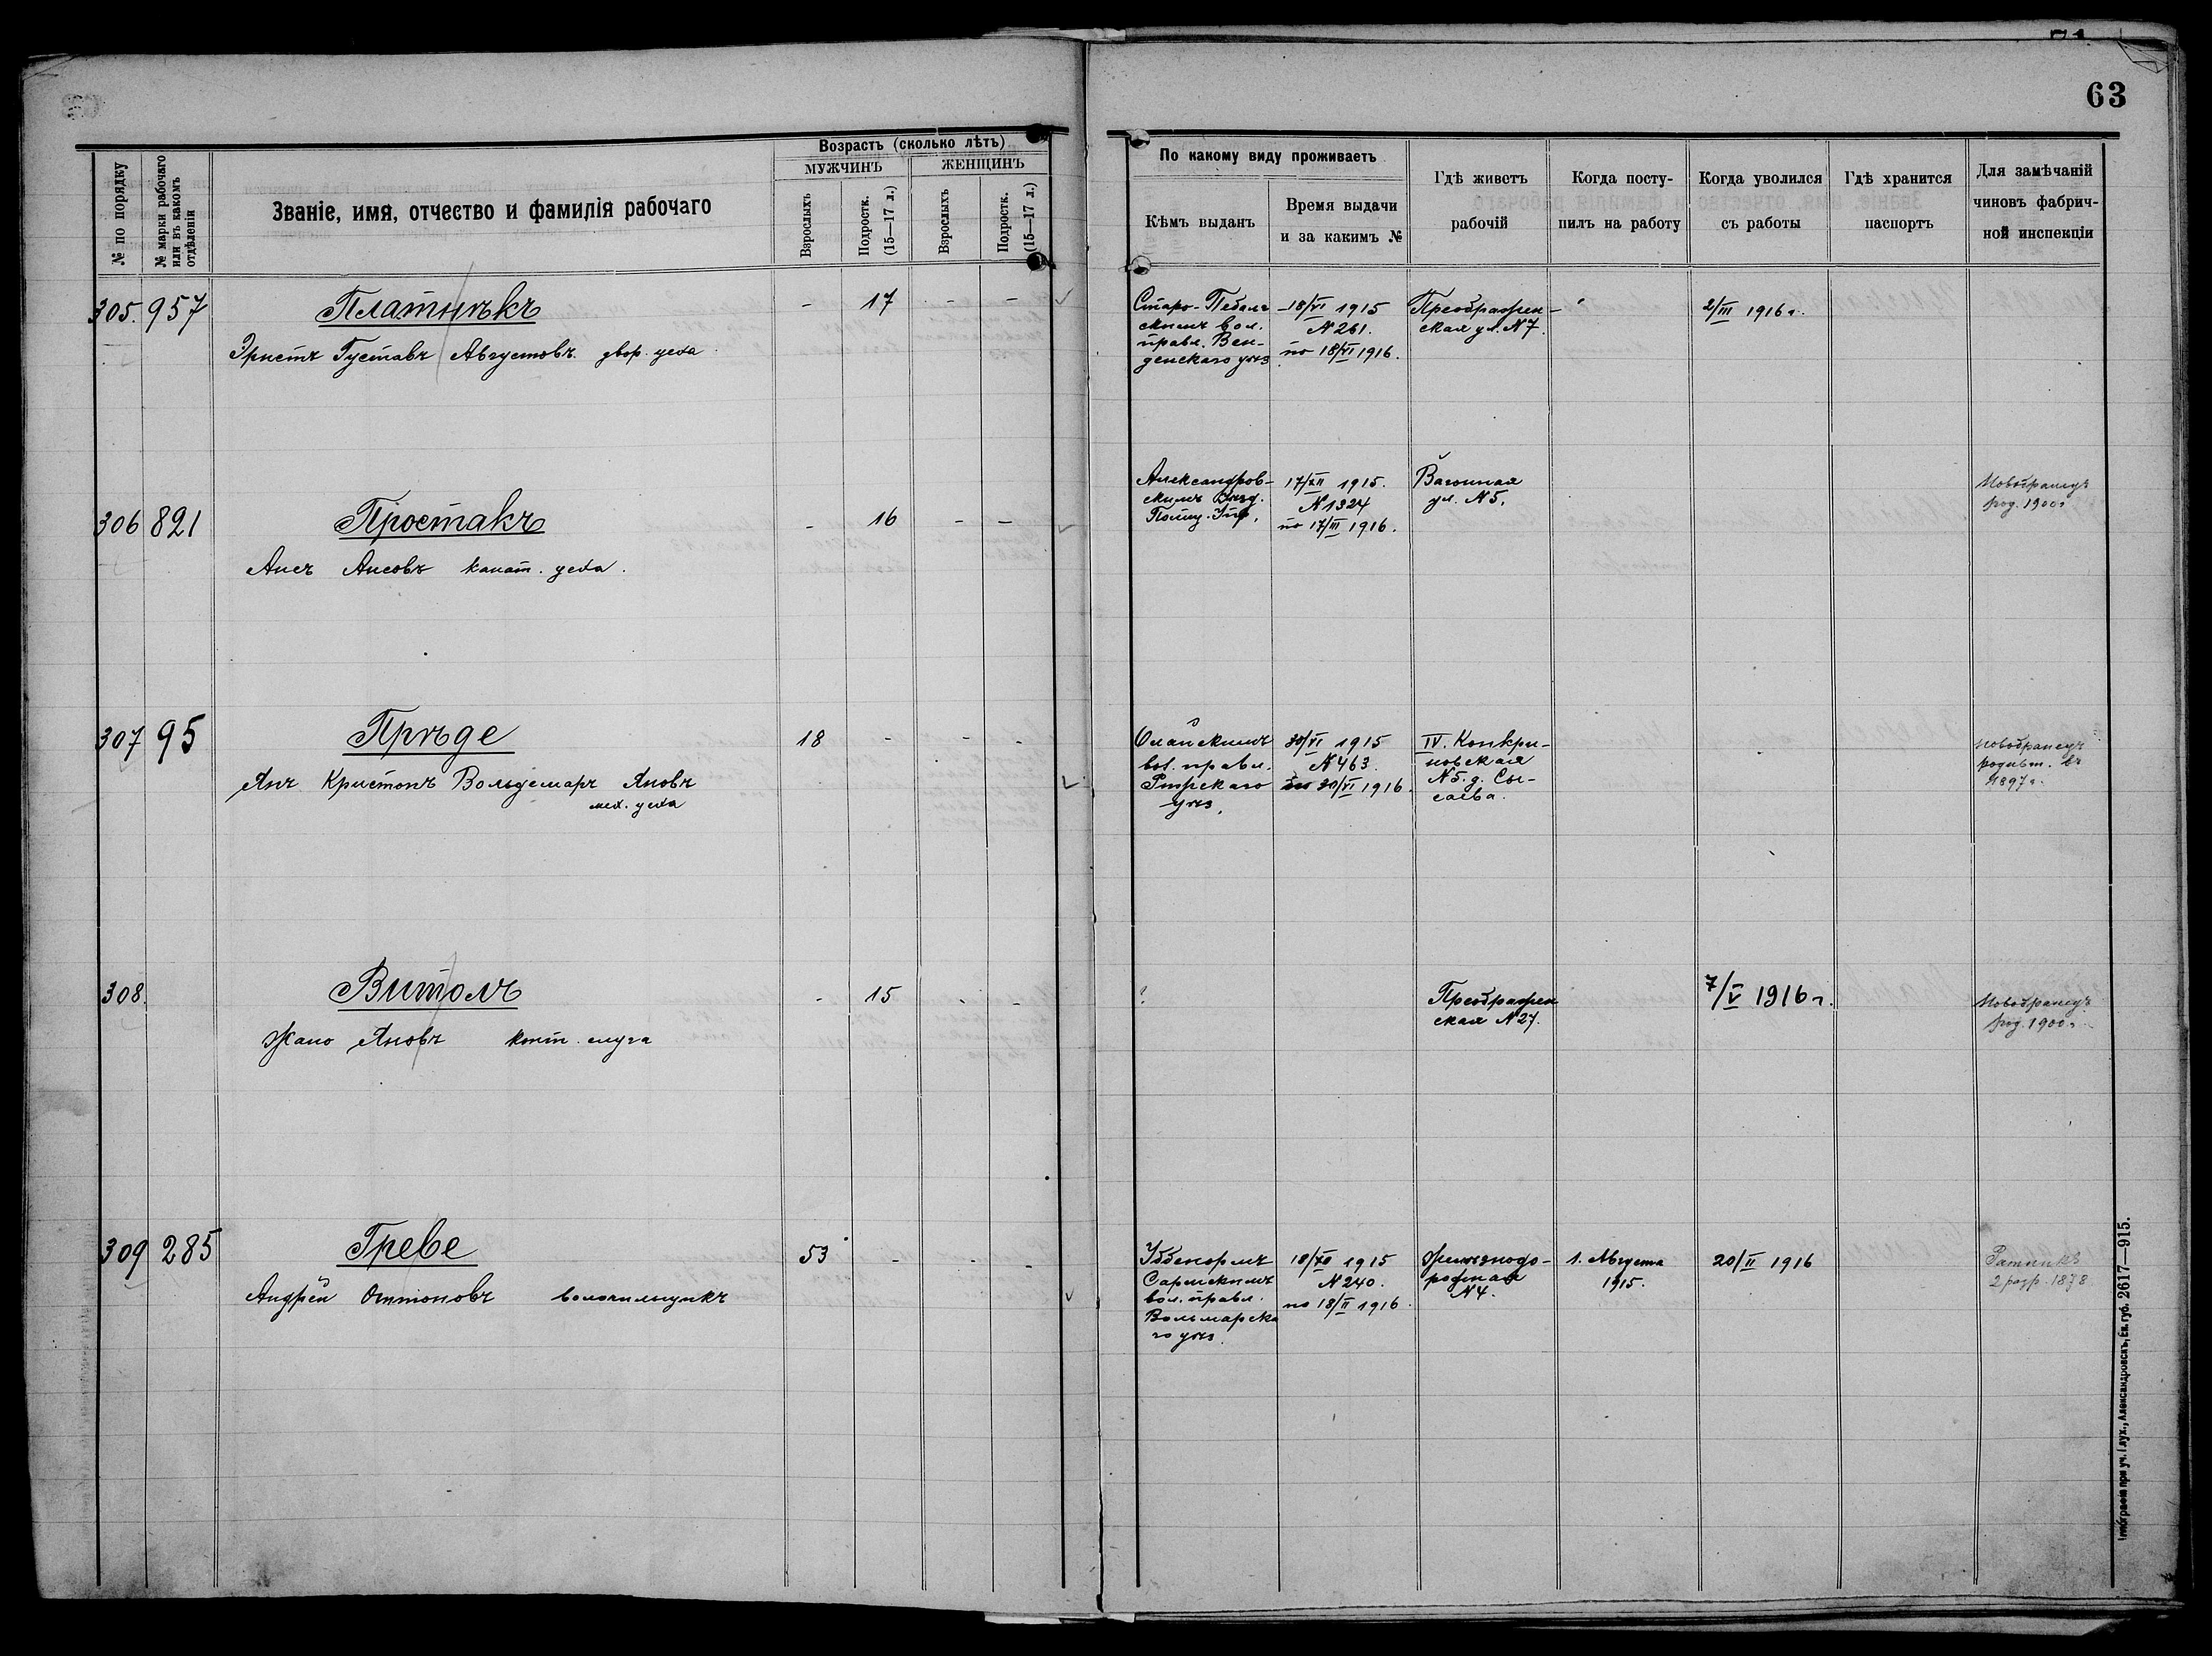 63
№ по порядку
№ марки рабочаго
или въ какомъ
отдѣленіи
Званіе, имя, отчество и фамилія рабочаго
Возрастъ (сколько лѣтъ)
МУЖЧИНЪ
ЖЕНЩИНЪ
Взрослыхъ
Подростк.
(15—17 л.)
Взрослыхъ
Подростк.
(15—17 л.)
По какому виду проживаетъ
Кѣмъ выданъ
Время выдачи
и за какимъ №
Гдѣ живетъ
рабочій
Когда посту-
пилъ на работу
Когда уволился
съ работы
Гдѣ хранится
паспортъ
Для замѣчаній
чиновъ фабрич-
ной инспекціи
305. 957 Платнѣкъ - 17 - -
Эрнстъ Густавъ Августовъ двор. цеха
Старо-Пебалг
скимъ вол.
правл. Вен-
денскаго уѣз
18/VI 1915
№ 261.
по 18/VI 1916.
Преображен-
ская ул. № 7.
2/III 1916 г.
306 821 Простакъ - 16 - -
Ансъ Ансовъ канат. цеха.
Александров-
скимъ Уѣзд.
Полиц. Упр.
17/XII 1915.
№ 1324
по 17/III 1916.
Вагонная
ул. № 5.
Новобранецъ
род. 1900 г
307 95 Прѣде 18 - - -
Янъ Кристопъ Вольдемаръ Яновъ
мех. цеха
Олайскимъ
вол. правл.
Рижскаго
уѣз.
30/VI 1915
№ 463.
по 30/VI 1916.
IV. Конкри-
новская
№ 5. д. Сы-
саева.
Новобранецъ
родивш. въ
1897 г.
308. Витолъ - 15 - -
Жано Яновъ конт. слуга
?
Преображен
ская № 27.
7/V 1916 г.
Новобранецъ
род. 1900 г.
309 285 Греве 53 - - -
Андрей Оттоновъ волочильщикъ
Уббенормъ
Сармскимъ
вол. правл.
Вольмарска
го уѣз.
18/XII 1915
№ 240.
по 18/II 1916.
Желѣзнодо-
рожная
№ 4.
1. Августа
1915.
20/II 1916
Ратникъ
2 разр. 1878
Типографія при уч. Глух., Александровскъ, Ек. губ. 2617—915.